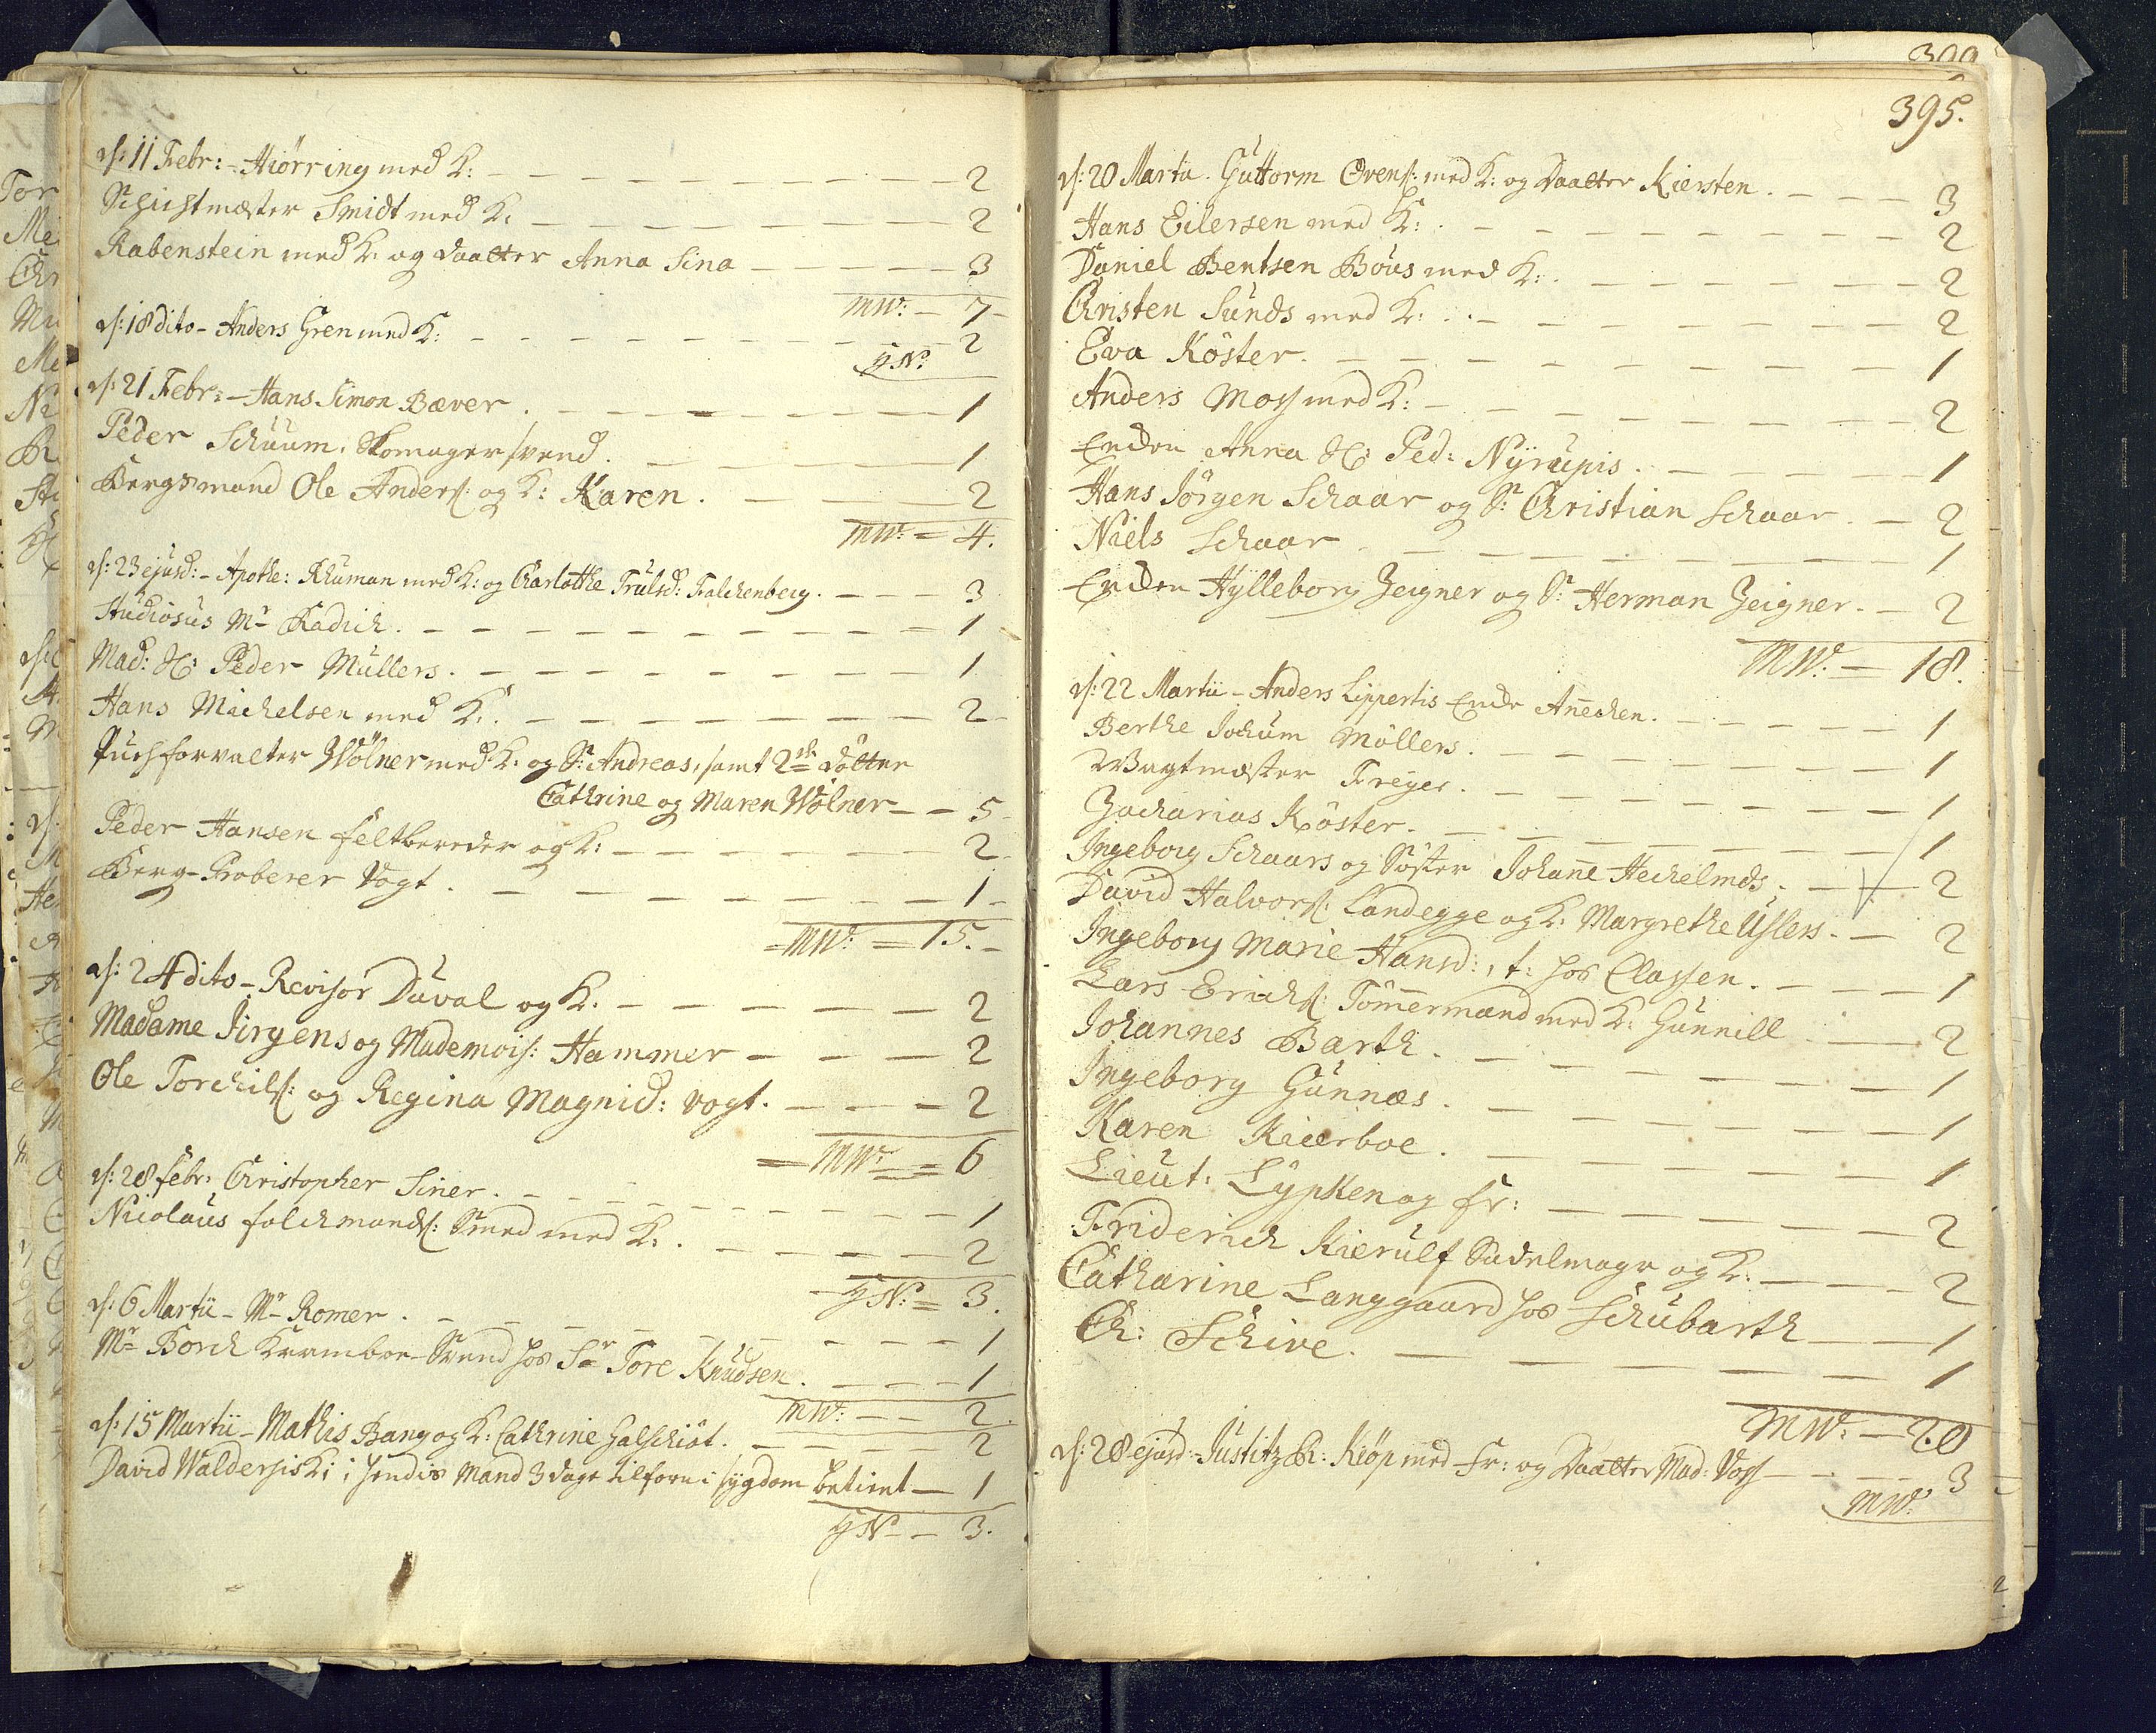 d: 11 Febr: - Hiörring med K: 2
Schichtmester Smidt med K: 2
Rabenstein med K: og Daatter Anna Sina 3
MW: 7
d: 18 dito - Anders Gren med K: 2
d: 21 Febr: - Hans Simon Bæver 1
Peder Schuum, Skomager svend 1
Bergsmand Ole Anders: og K: Karen 2
MW: = 4.
d: 23 ejusd: - Apothe: Rhuman med K: og Charlothe Trulsd: Falchenberg 3
Studiosus Mr Radich 1
Mad: Sl: Peder Müllers 1
Hans Michelsen med K: 2
Puchforvalter Wölner med K: og Sn Andreas, samt 2de dötter
Cathrine og Maren Wölner 5
Peder Hansen feltbereder og K: 2
Berg-Proberer Vogt 1
MW: = 15.
d: 24 dito - Revisor Duval og K: 2
Madame Jirgens og Mademois: Hammer 2
Ole Torchils: og Regina Magnid: Vogt 2
MW: = 6
d: 28 febr: Christopher Siner 1
Nicolaus folchmands: Smed med K: 2
3.
d: 6 Martii - Mr Romer 1
Mr Borch Kramboe-Svend hos Sr Tore Knudsen 1
MW: 2
d: 15 Martii - Mathis Bang og K: Cathrine Galschiöt 2
David Walders K: i hendis Mand 3 dage tilforn i sygdom betient 1
3.
399
395.
d: 20 Martii. Guttorm Evens: med K: og Daatter Kiersten 3
Hans Eilersen med K: 2
Daniel Bentsen Böus med K: 2
Christen Sunds med K: 2
Eva Köster 1
Anders Moss med K: 2
Enken Anna Sl: Ped: Nyrupis 1
Hans Jörgen Schaar og Sn Christian Schaar 2
Niels Schaar 1
Enken Hylleborg Zeigner og Sn Herman Zeigner 2
MW: = 18.
d: 22 Martii - Anders Lippertis Enke Anechen 1
Berthe Jochum Möllers 1
Wagtmester Freyer 1
Zacharias Köster 1
Ingeborg Schaars og Söster Johane Hechelmds 2
David Halvors: Landegge og K: Margrethe Uslers 2
Ingeborg Marie Hansd:, t: hos Classen 1
Lars Erichs: Tömermand med K: Gunnill 2
Johannes Barth 1
Ingeborg Gunnæs 1
Karen Kierboe 1
Lieut: Lypken og fr: 2
Friderich Kierulf Sadelmager og K: 2
Catharine Langgaard hos Schubarth 1
Ch: Schive 1
MW: 20
d: 28 ejusd: - Justitz R: Kiöp med Fr: og Daatter Mad: Voss 3
MW: